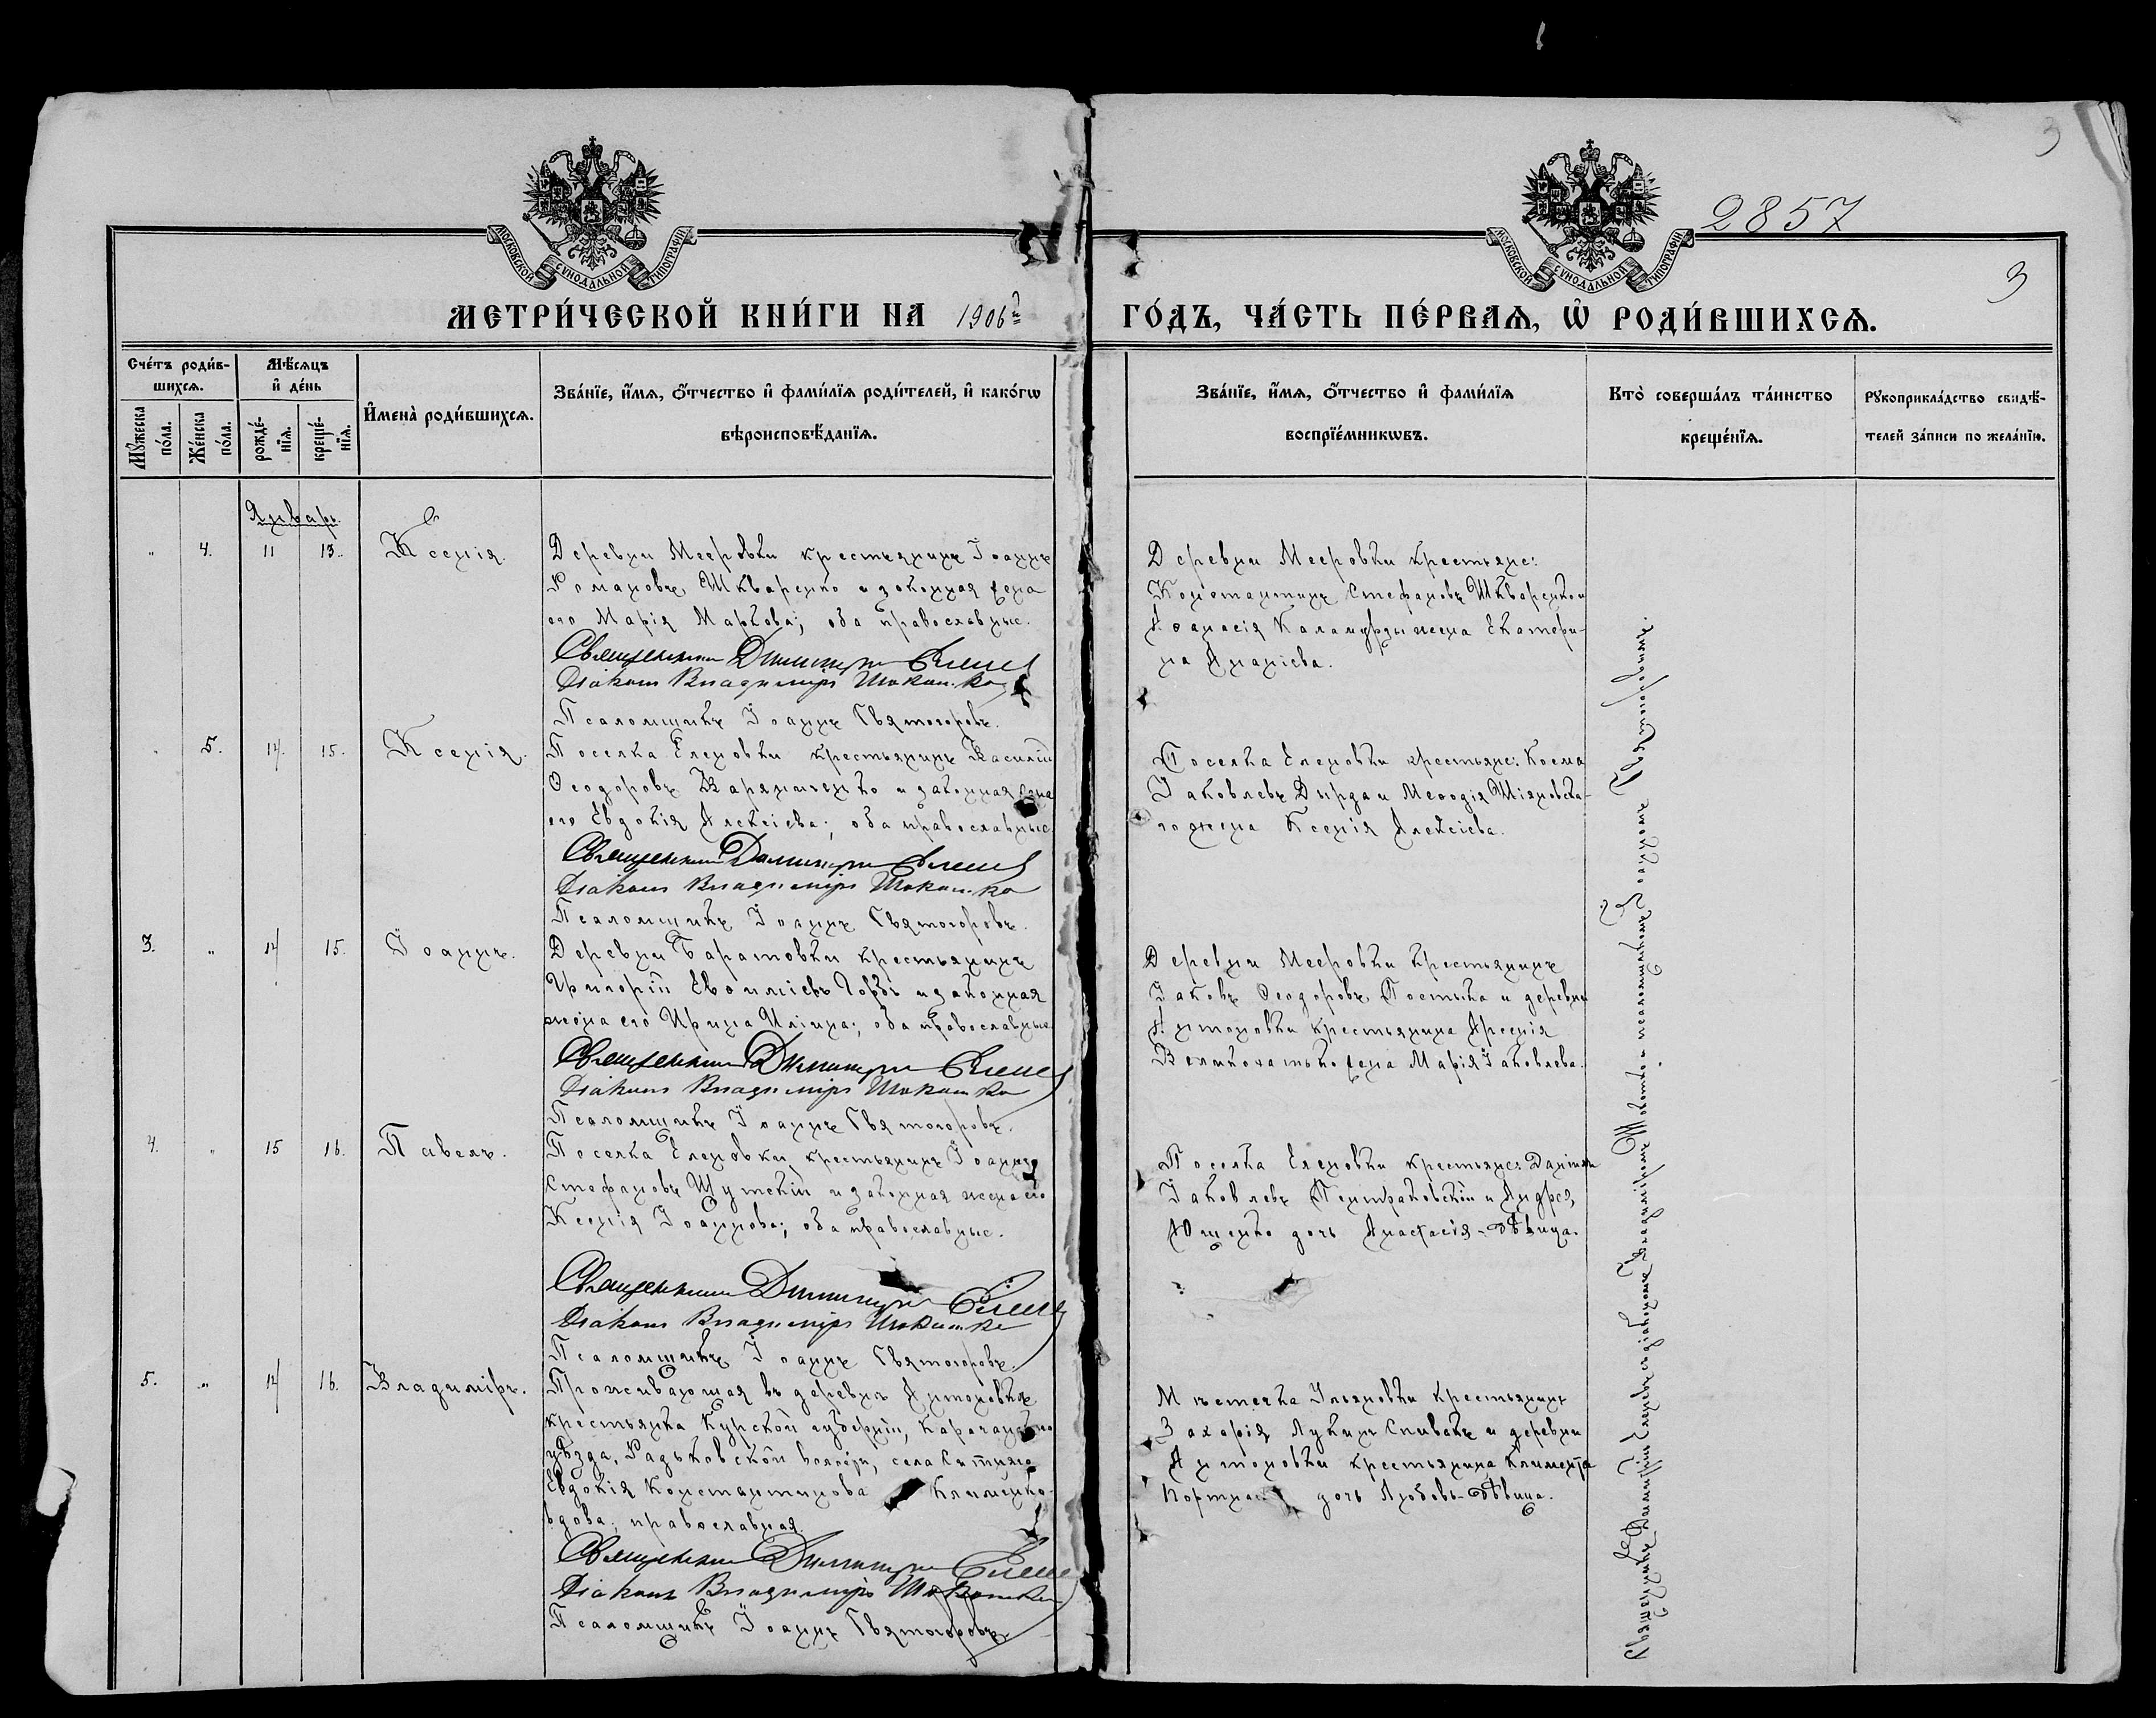 3
2857
3
МОСКОВСКОЙ СѴНОДАЛЬНОЙ ТИПОГРАФІИ
МОСКОВСКОЙ СѴНОДАЛЬНОЙ ТИПОГРАФІИ
МЕТРИ́ЧЕСКОЙ КНИ́ГИ НА 1906й ГО́ДЪ, ЧА́СТЬ ПЕ́РВАѦ, Ѡ҆ РОДИ́ВШИХСѦ.
Сче́тъ роди́в-
шихсѧ.
Мꙋ́жеска по́ла.
Же́нска по́ла.
Мѣ́сѧцъ
и҆ де́нь
рожде́-нїѧ.
креще́-нїѧ.
И҆мена̀ роди́вшихсѧ.
Зва́нїе, и҆́мѧ, ѻ҆́тчество и҆ фами́лїѧ роди́телей, и҆ како́гѡ
вѣроисповѣ́данїѧ.
Зва́нїе, и҆́мѧ, ѻ҆́тчество и҆ фами́лїѧ
воспрїе́мникѡвъ.
Кто̀ соверша́лъ та́инство
креще́нїѧ.
Рꙋкоприкла́дство свидѣ́-
телей за́писи по жела́нїю.
Январь.
" 4. 11 13. Ксенія.
Деревни Мееровки крестьянинъ Іоаннъ
Романовъ Шкваренко и законная жена
его Марія Маркова; оба православные.
Священникъ Димитрій
Діаконъ Владиміръ Шокотько
Псаломщикъ Іоаннъ Святогоровъ.
Деревни Мееровки крестьяне:
Константинъ Стефановъ Шкваренко и
Аѳанасія Каламурды жена Екатери-
на Ананіева.
5. 14. 15. Ксенія.
Поселка Еленовки крестьянинъ Василій
Ѳеодоровъ и законная жена
его Евдокія Алексіева; оба православные
Священникъ Димитрій
Діаконъ Владиміръ Шокотько
Псаломщикъ Іоаннъ Святогоровъ.
Поселка Еленовки крестьяне: Косма
Іаковлевъ Дырда и Меѳодія
го жена Ксенія Алексіева.
3. " 14 15. Іоаннъ.
Деревни Баратовки крестьянинъ
Григорій Евѳиміевъ и законная
жена его Ирина Иліина; оба православные
Священникъ Димитрій
Діаконъ Владиміръ Шокотько
Псаломщикъ Іоаннъ Святогоровъ.
Деревни Мееровки крестьянинъ
Іаковъ Ѳеодоровъ и деревни
Антоновки крестьянина Арсенія
жена Марія Іаковлева.
4. " 15 16. Павелъ.
Поселка Еленовки крестьянинъ Іоаннъ
Стефановъ Щутскій и законная жена его
Ксенія Іоаннова; оба православные.
Священникъ Димитрій
Діаконъ Владиміръ Шокотько
Псаломщикъ Іоаннъ Святогоровъ.
Поселка Еленовки крестьяне: Даніилъ
Іаковлевъ и Андрея
Ющенко дочь Анастасія - дѣвица.
5. " 14 16. Владиміръ.
Проживающая въ деревнѣ Антоновкѣ
крестьянка Курской губерніи, Корочанскаго
уѣзда, Радьковской волости, села
Евдокія Константинова Клименко
вдова; православная.
Священникъ Димитрій
Діаконъ Владиміръ Шокотько
Псаломщикъ Іоаннъ Святогоровъ
Мѣстечка Ульяновки крестьянинъ
Захарія Лукинъ Спивакъ и деревни
Антоновки крестьянина Климента
дочь Любовь - дѣвица.
Священникъ Димитрій съ діакономъ Владиміромъ Шокотько и псаломщикомъ Іоанномъ Святогоровымъ.